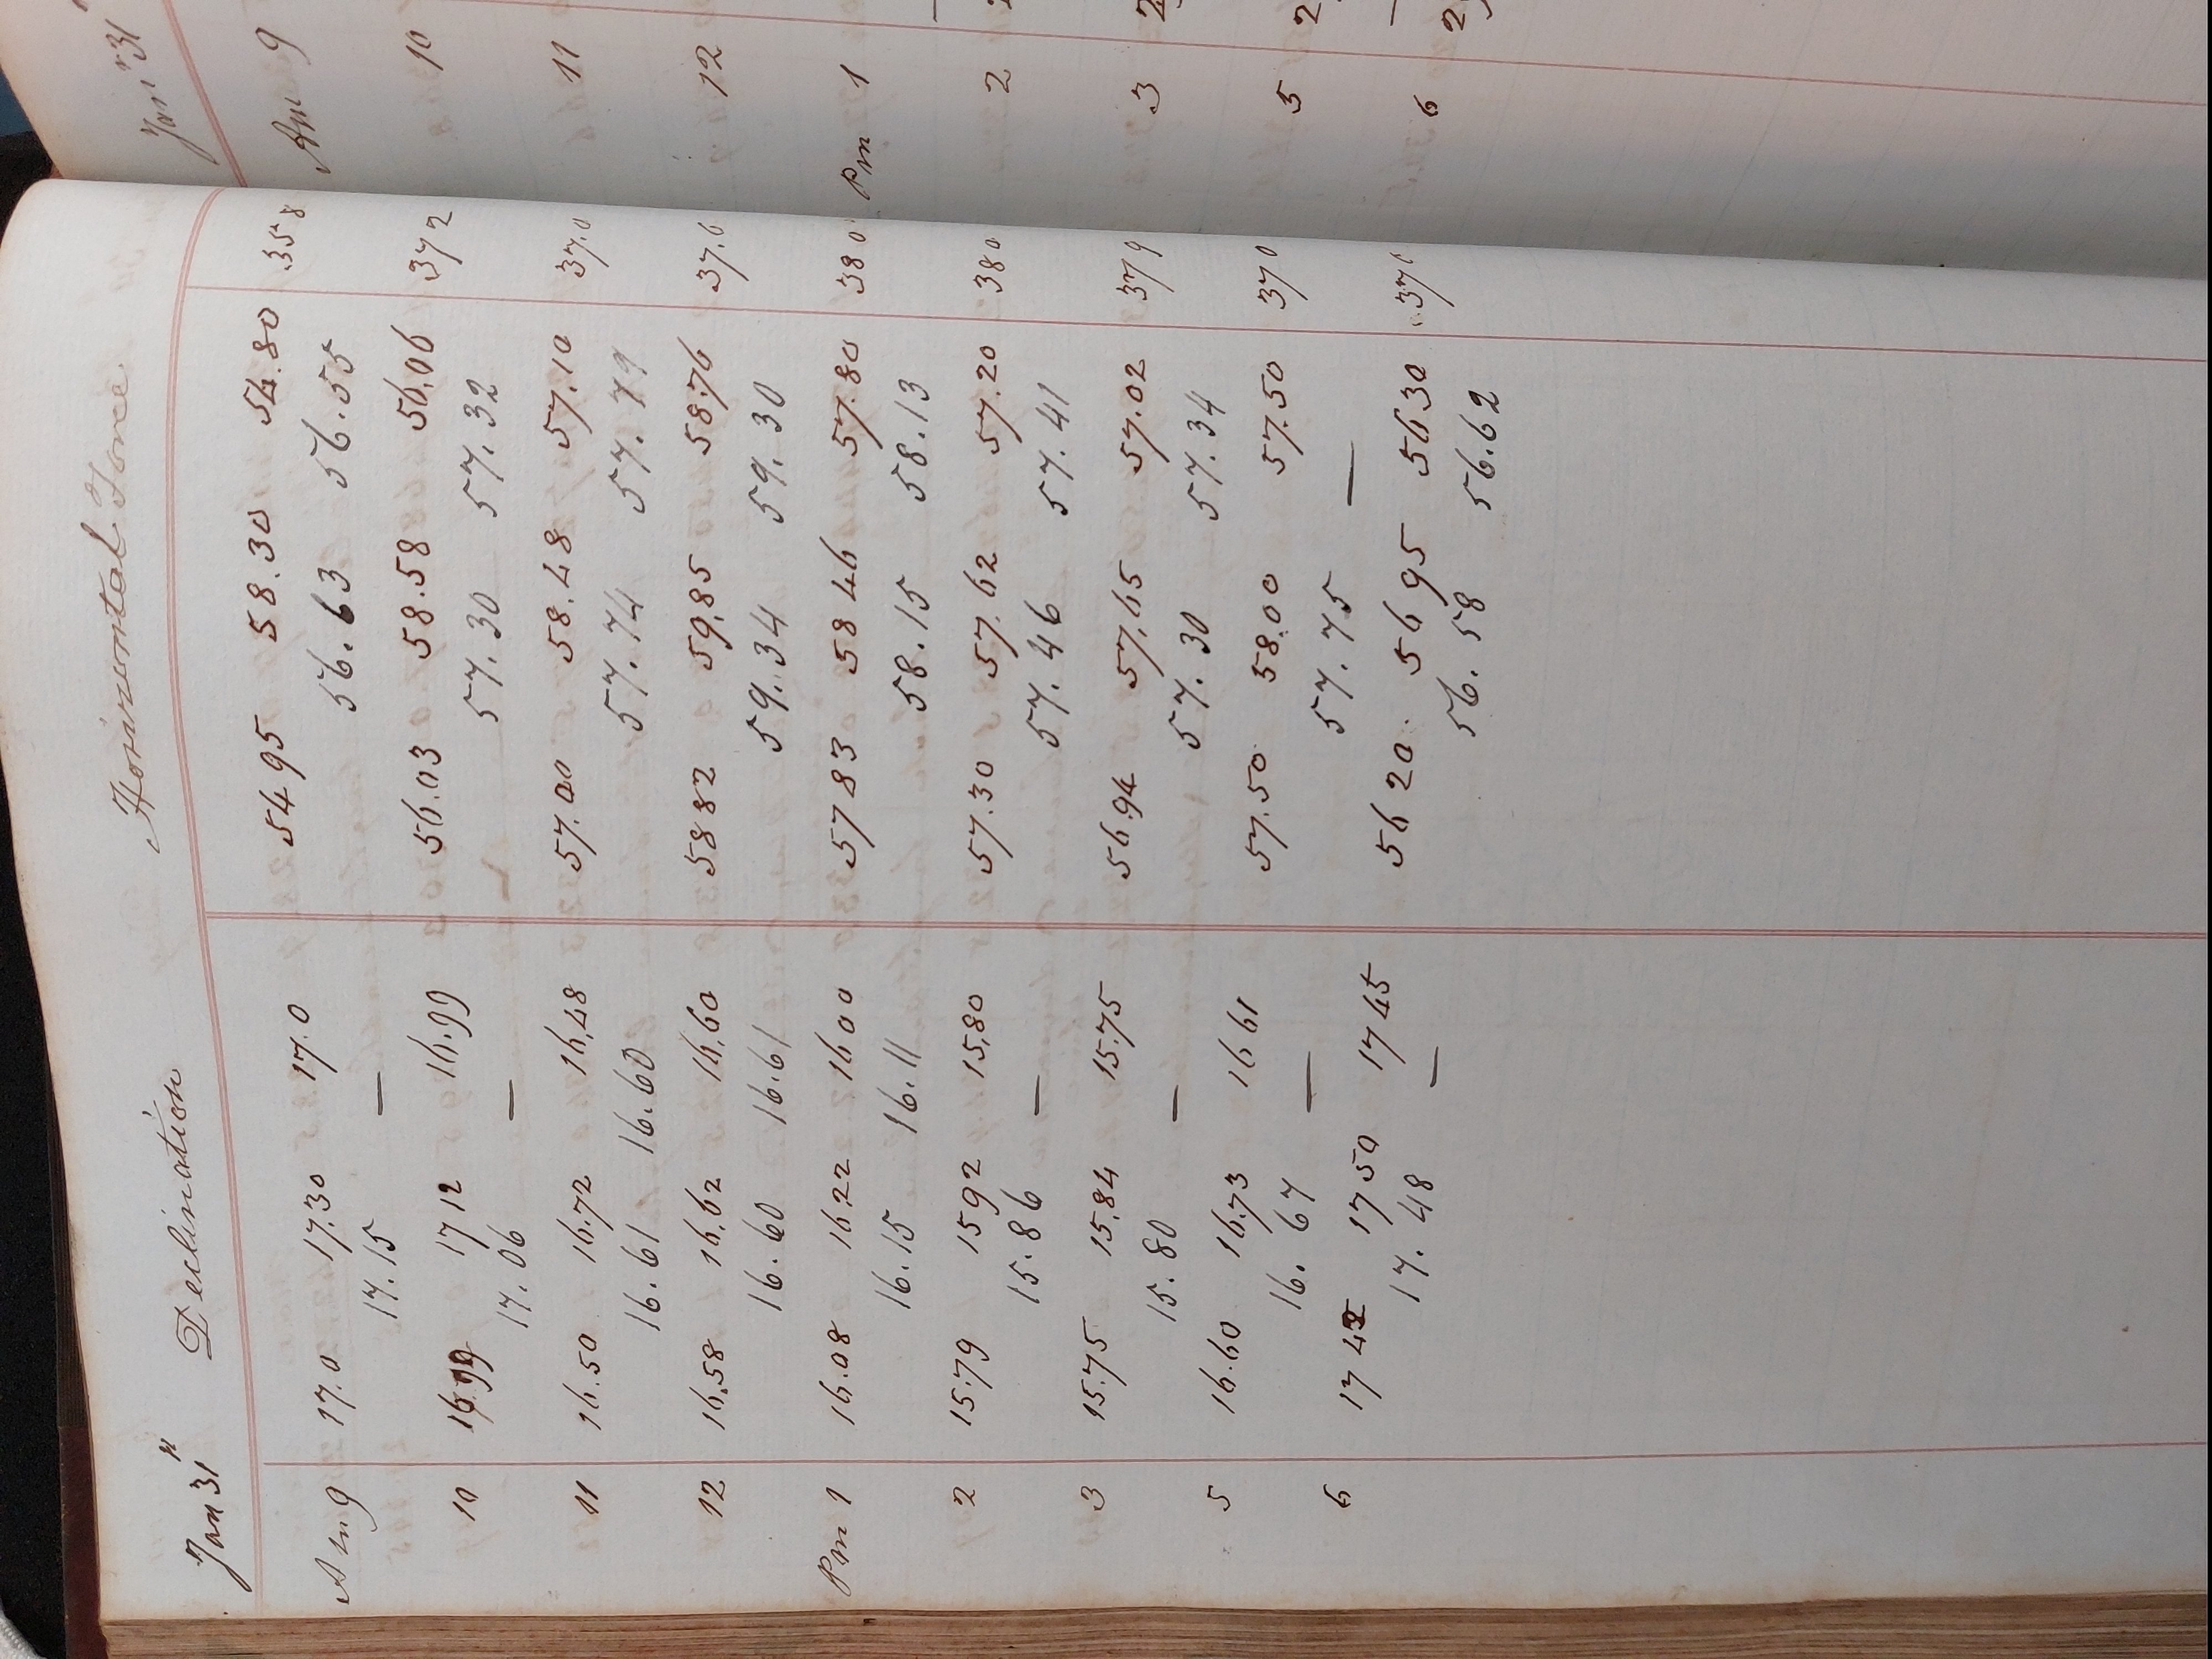 Horizontal Force
Jan 31st Declination
Am 9 17.0 17.30 17.0 54 95 58.30 54.80 35 8
17.15 — 56.63 56.55
10 16.99 17 12 16.99 56.03 58.58 56.06 37 2
17.06 — 57.30 57.32
11 16.50 16.72 16.48 57.00 58.48 57.10 37.0
16.61 16.60 57.74 57.79
12 16.58 16.62 16.60 58 82 59.85 58.76 37.6
16.60 16.61 59.34 59.30
Pm 1 16.08 16 22 16 00 57 83 58 46 57.80 38 0
16.15 16.11 58.15 58.13
2 15.79 15 92 15.80 57.30 57.62 57.20 38 0
15.86 — 57.46 57.41
3 15.75 15.84 15.75 56.94 57.65 57.02 37 9
15.80 — 57.30 57.34
5 16.60 16.73 16 61 57.50 58.00 57.50 37 0
16.67 — 57.75 —
6 17 45 17 50 17 45 56 20 56 95 56 30 37
17.48 — 56.58 56.62
Jan 31
Am 9
10
11
12
Pm 1
2
3
5
6